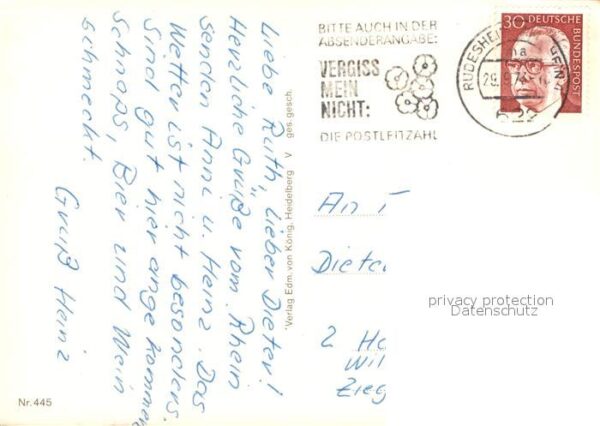 Liebe Ruth, Lieber Dieter!
Herzliche Grüße vom Rhein
senden Anni u. Heinz. Das
Wetter ist nicht besonders.
Sind gut hier angekommen
Schnaps, Bier und Wein
schmeckt.
Gruß Heinz
Nr. 445
Verlag Edm. von König, Heidelberg V ges. gesch.
BITTE AUCH IN DER
ABSENDERANGABE:
VERGISS
MEIN
NICHT:
DIE POSTLEITZAHL
30 DEUTSCHE
BUNDESPOST
29.9.7
622
An
Dieter
privacy protection
Datenschutz
2